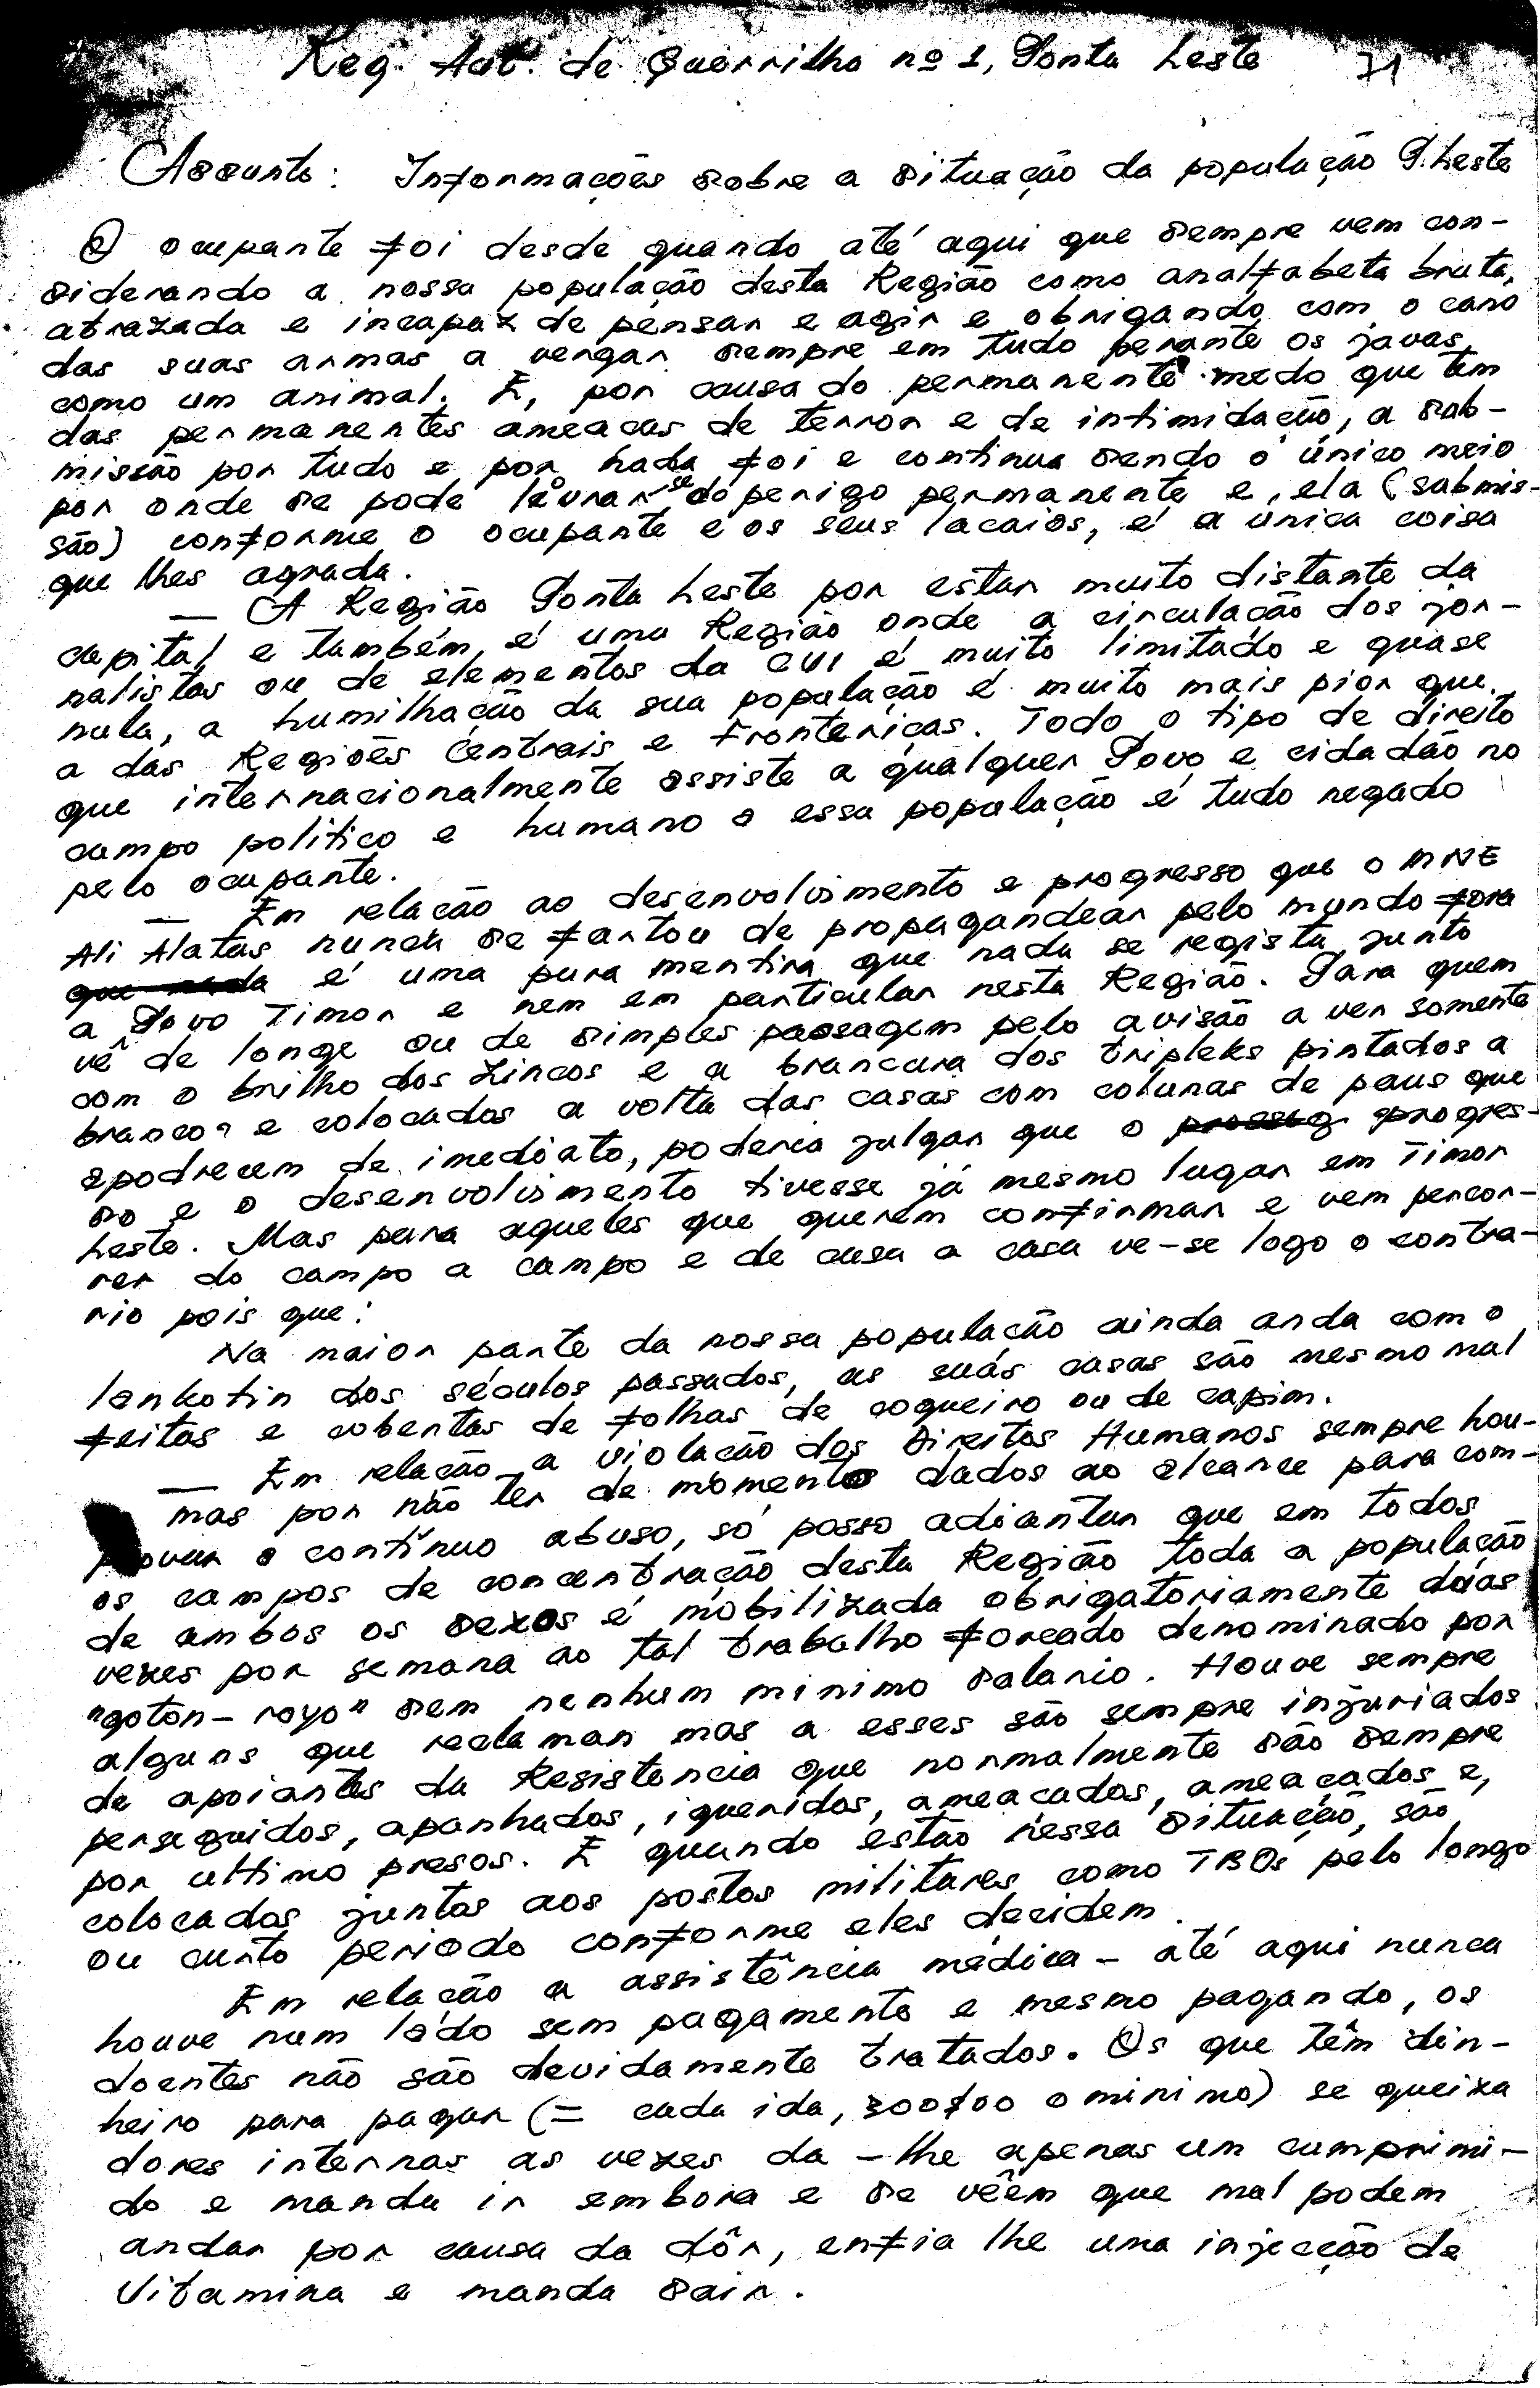 Reg. Aut. de Guerrilha nº 1, Ponta Leste 71
Assunto: Informações sobre a situação da população P. Leste
O ocupante foi desde quando até aqui que sempre vem con-
siderando a nossa população desta Região como analfabeta bruta,
atrazada e incapaz de pensar e agir e obrigando com o cano
das suas armas a vergar sempre em tudo perante os javas
como um animal. E, por causa do permanente medo que têm
das permanentes ameaças de terror e de intimidação, a sub-
missão por tudo e por nada foi e continua sendo o único meio
por onde se pode livrar se do perigo permanente e, ela (submis-
são) conforme o ocupante e os seus lacaios, é a única coisa
que lhes agrada.
— A Região Ponta Leste por estar muito distante da
capital e também é uma Região onde a circulação dos jor-
nalistas ou de elementos da é muito limitado e quase
nula, a humilhação da sua população é muito mais pior que
a das Regiões Centrais e Fronteriças. Todo o tipo de direito
que internacionalmente assiste a qualquer Povo e cidadão no
campo político e humano a essa população é tudo negado
pelo ocupante.
— Em relação ao desenvolvimento e progresso que o MNE
Ali Alatas nunca se fartou de propagandear pelo mundo fora
que nada é uma pura mentira que nada se regista junto
a Povo Timor e nem em particular nesta Região. Para quem
vê de longe ou de simples passagem pelo avisão a ver somente
com o brilho dos zincos e a brancura dos tripleks pintados a
branco e colocados a volta das casas com colunas de paus que
apodrecem de imediato, poderia julgar que o progres-
so e o desenvolvimento tivesse já mesmo lugar em Timor
Leste. Mas para aqueles que querem confirmar e vem percor-
rer do campo a campo e de casa a casa ve-se logo o contra-
rio pois que:
Na maior parte da nossa população ainda anda com o
lankotin dos séculos passados, as suas casas são mesmo mal
feitas e cobertas de folhas de coqueiro ou de capim.
— Em relação a violação dos Direitos Humanos sempre hou-
mas por não ter de momento dados ao alcance para com-
provar o contínuo abuso, só posso adiantar que em todos
os campos de concentração desta Região toda a população
de ambos os sexos é mobilizada obrigatoriamente duas
vezes por semana ao tal trabalho forçado denominado por
"goton-royo" sem nenhum minimo salario. Houve sempre
alguns que reclamam mas a esses são sempre injuriados
de apoiantes da Resistencia que normalmente são sempre
perseguidos, apanhados, iqueridos, ameacados, ameaçados e,
por ultimo presos. E quando estão nessa situação, são
colocados juntos aos postos militares como TBOs pelo longo
ou curto periodo conforme eles decidem.
Em relação a assistência médica - até aqui nunca
houve num lado sem pagamento e mesmo pagando, os
doentes não são devidamente tratados. Os que têm din-
heiro para pagar (= cada ida, 300$00 o minimo) se queixa
dores internas as vezes da-lhe apenas um cumprimi-
do e manda ir embora e se vêem que mal podem
andar por causa da dôr, enfia lhe uma injecção de
Vitamina e manda sair.